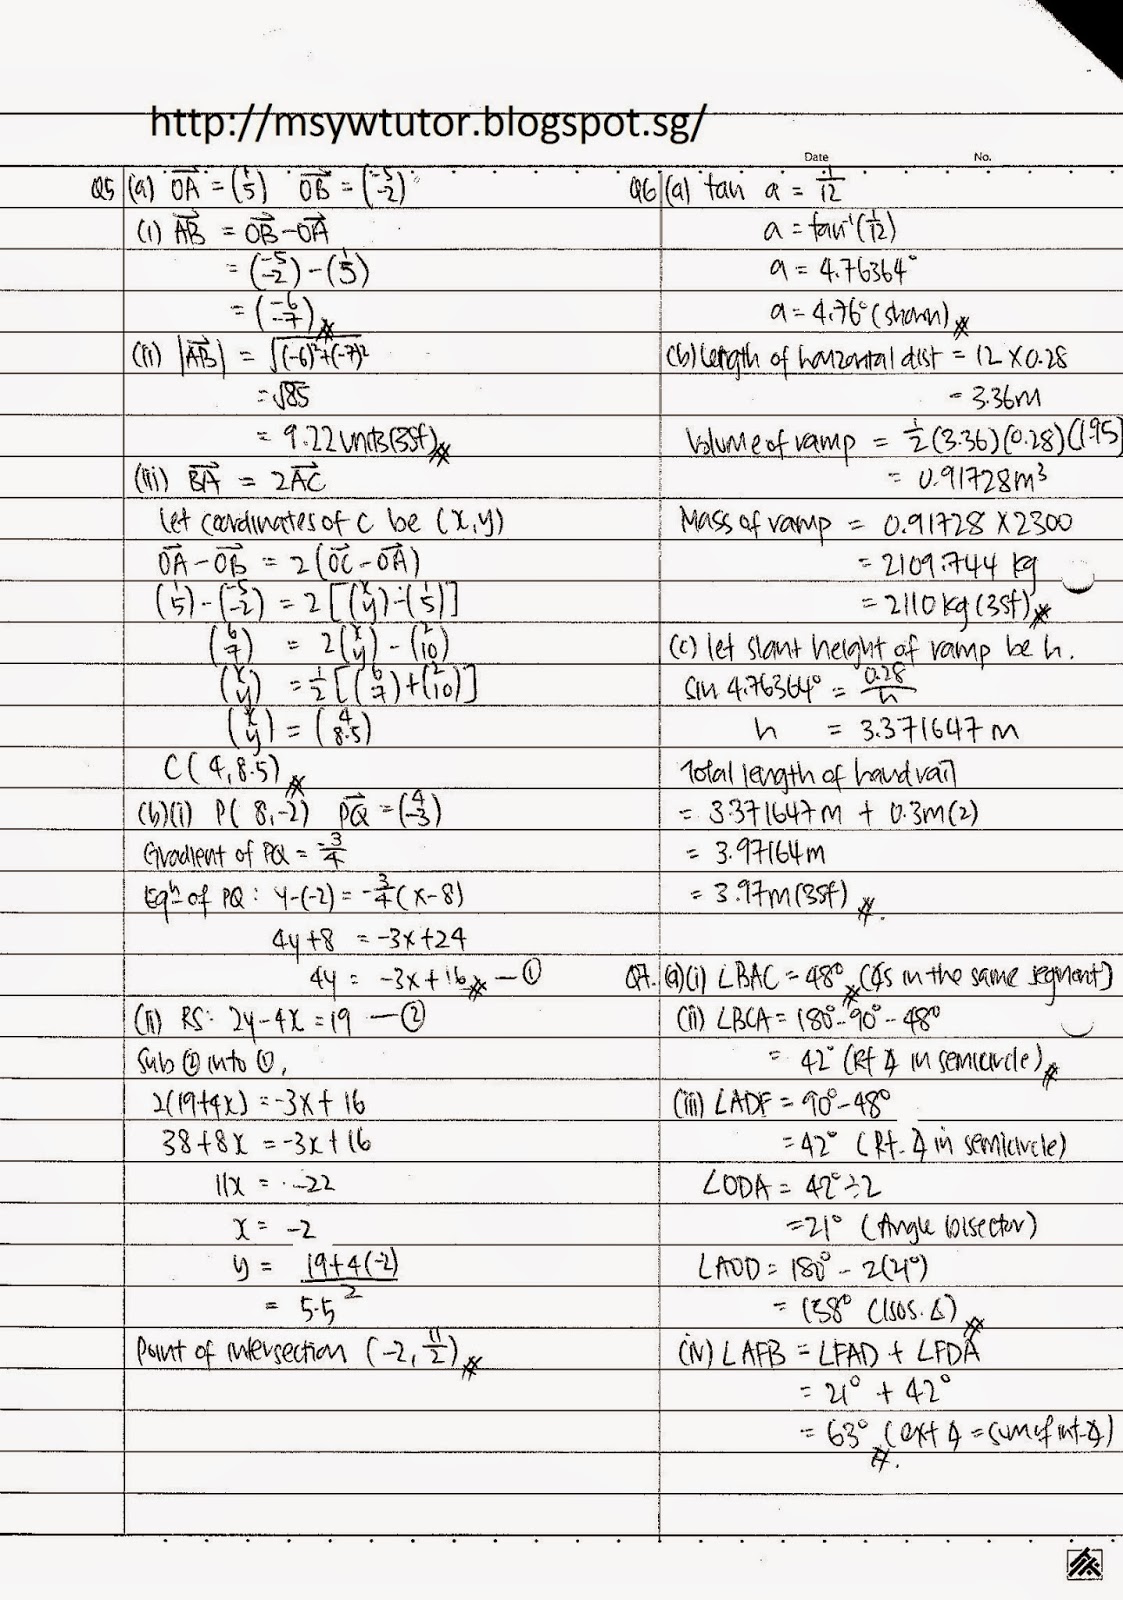 http://msywtutor.blogspot.sg/
Date No.
Q5 (a) OA = (1 5) OB = (-5 -2)
(i) AB = OB - OA
= (-5 -2) - (1 5)
= (-6 -7)
(ii) |AB| = √(-6)²+(-7)²
= √85
= 9.22 units (3sf)
(iii) BA = 2AC
Let coordinates of C be (x,y)
OA - OB = 2(OC - OA)
(1 5) - (-5 -2) = 2[(x y) - (1 5)]
(6 7) = 2(x y) - (2 10)
(x y) = 1/2[(6 7) + (2 10)]
(x y) = (4 8.5)
C(4, 8.5)
(b)(i) P(8,-2) PQ = (4 -3)
Gradient of PQ = -3/4
Eqn of PQ: y-(-2) = -3/4(x-8)
4y+8 = -3x+24
4y = -3x+16 — ①
(ii) RS: 2y-4x = 19 — ②
Sub ② into ①,
2(19+4x) = -3x+16
38+8x = -3x+16
11x = -22
x = -2
y = 19+4(-2)
2
= 5.5
Point of intersection (-2, 11/2)
Q6 (a) tan a = 1/12
a = tan⁻¹(1/12)
a = 4.76364°
a = 4.76° (shown)
(b) Length of horizontal dist = 12 × 0.28
= 3.36m
Volume of ramp = 1/2(3.36)(0.28)(1.95)
= 0.91728m³
Mass of ramp = 0.91728 × 2300
= 2109.744 kg
= 2110kg (3sf)
(c) let slant height of ramp be h.
sin 4.76364° = 0.28/h
h = 3.371647 m
Total length of handrail
= 3.371647m + 0.3m(2)
= 3.97164m
= 3.97m (3sf)
Q7. (a)(i) ∠BAC = 48° (∠s in the same segment)
(ii) ∠BCA = 180° - 90° - 48°
= 42° (Rt ∠ in semicircle)
(iii) ∠ADF = 90° - 48°
= 42° (Rt. ∠ in semicircle)
∠ODA = 42° ÷ 2
= 21° (Angle bisector)
∠AOD = 180° - 2(21°)
= 138° (isos. Δ)
(iv) ∠AFB = ∠FAD + ∠FDA
= 21° + 42°
= 63° (ext ∠ = sum of int. ∠)